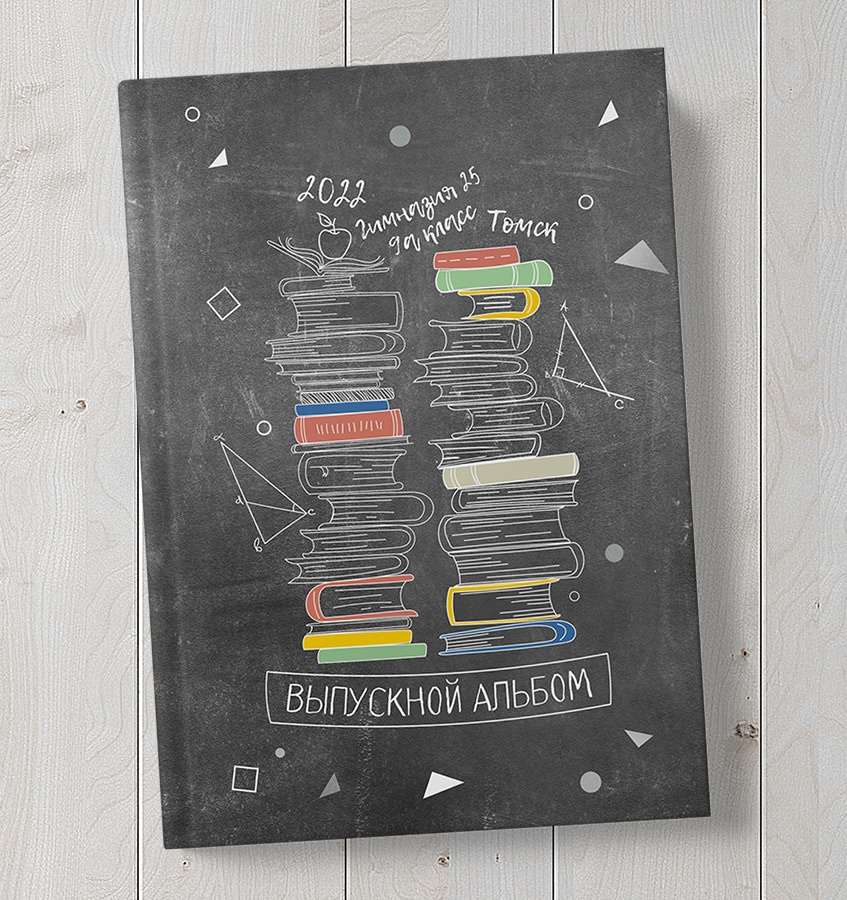 2022
Гимназия 25
9а класс
Томск
A
B
C
a
d
C
b
ВЫПУСКНОЙ АЛЬБОМ